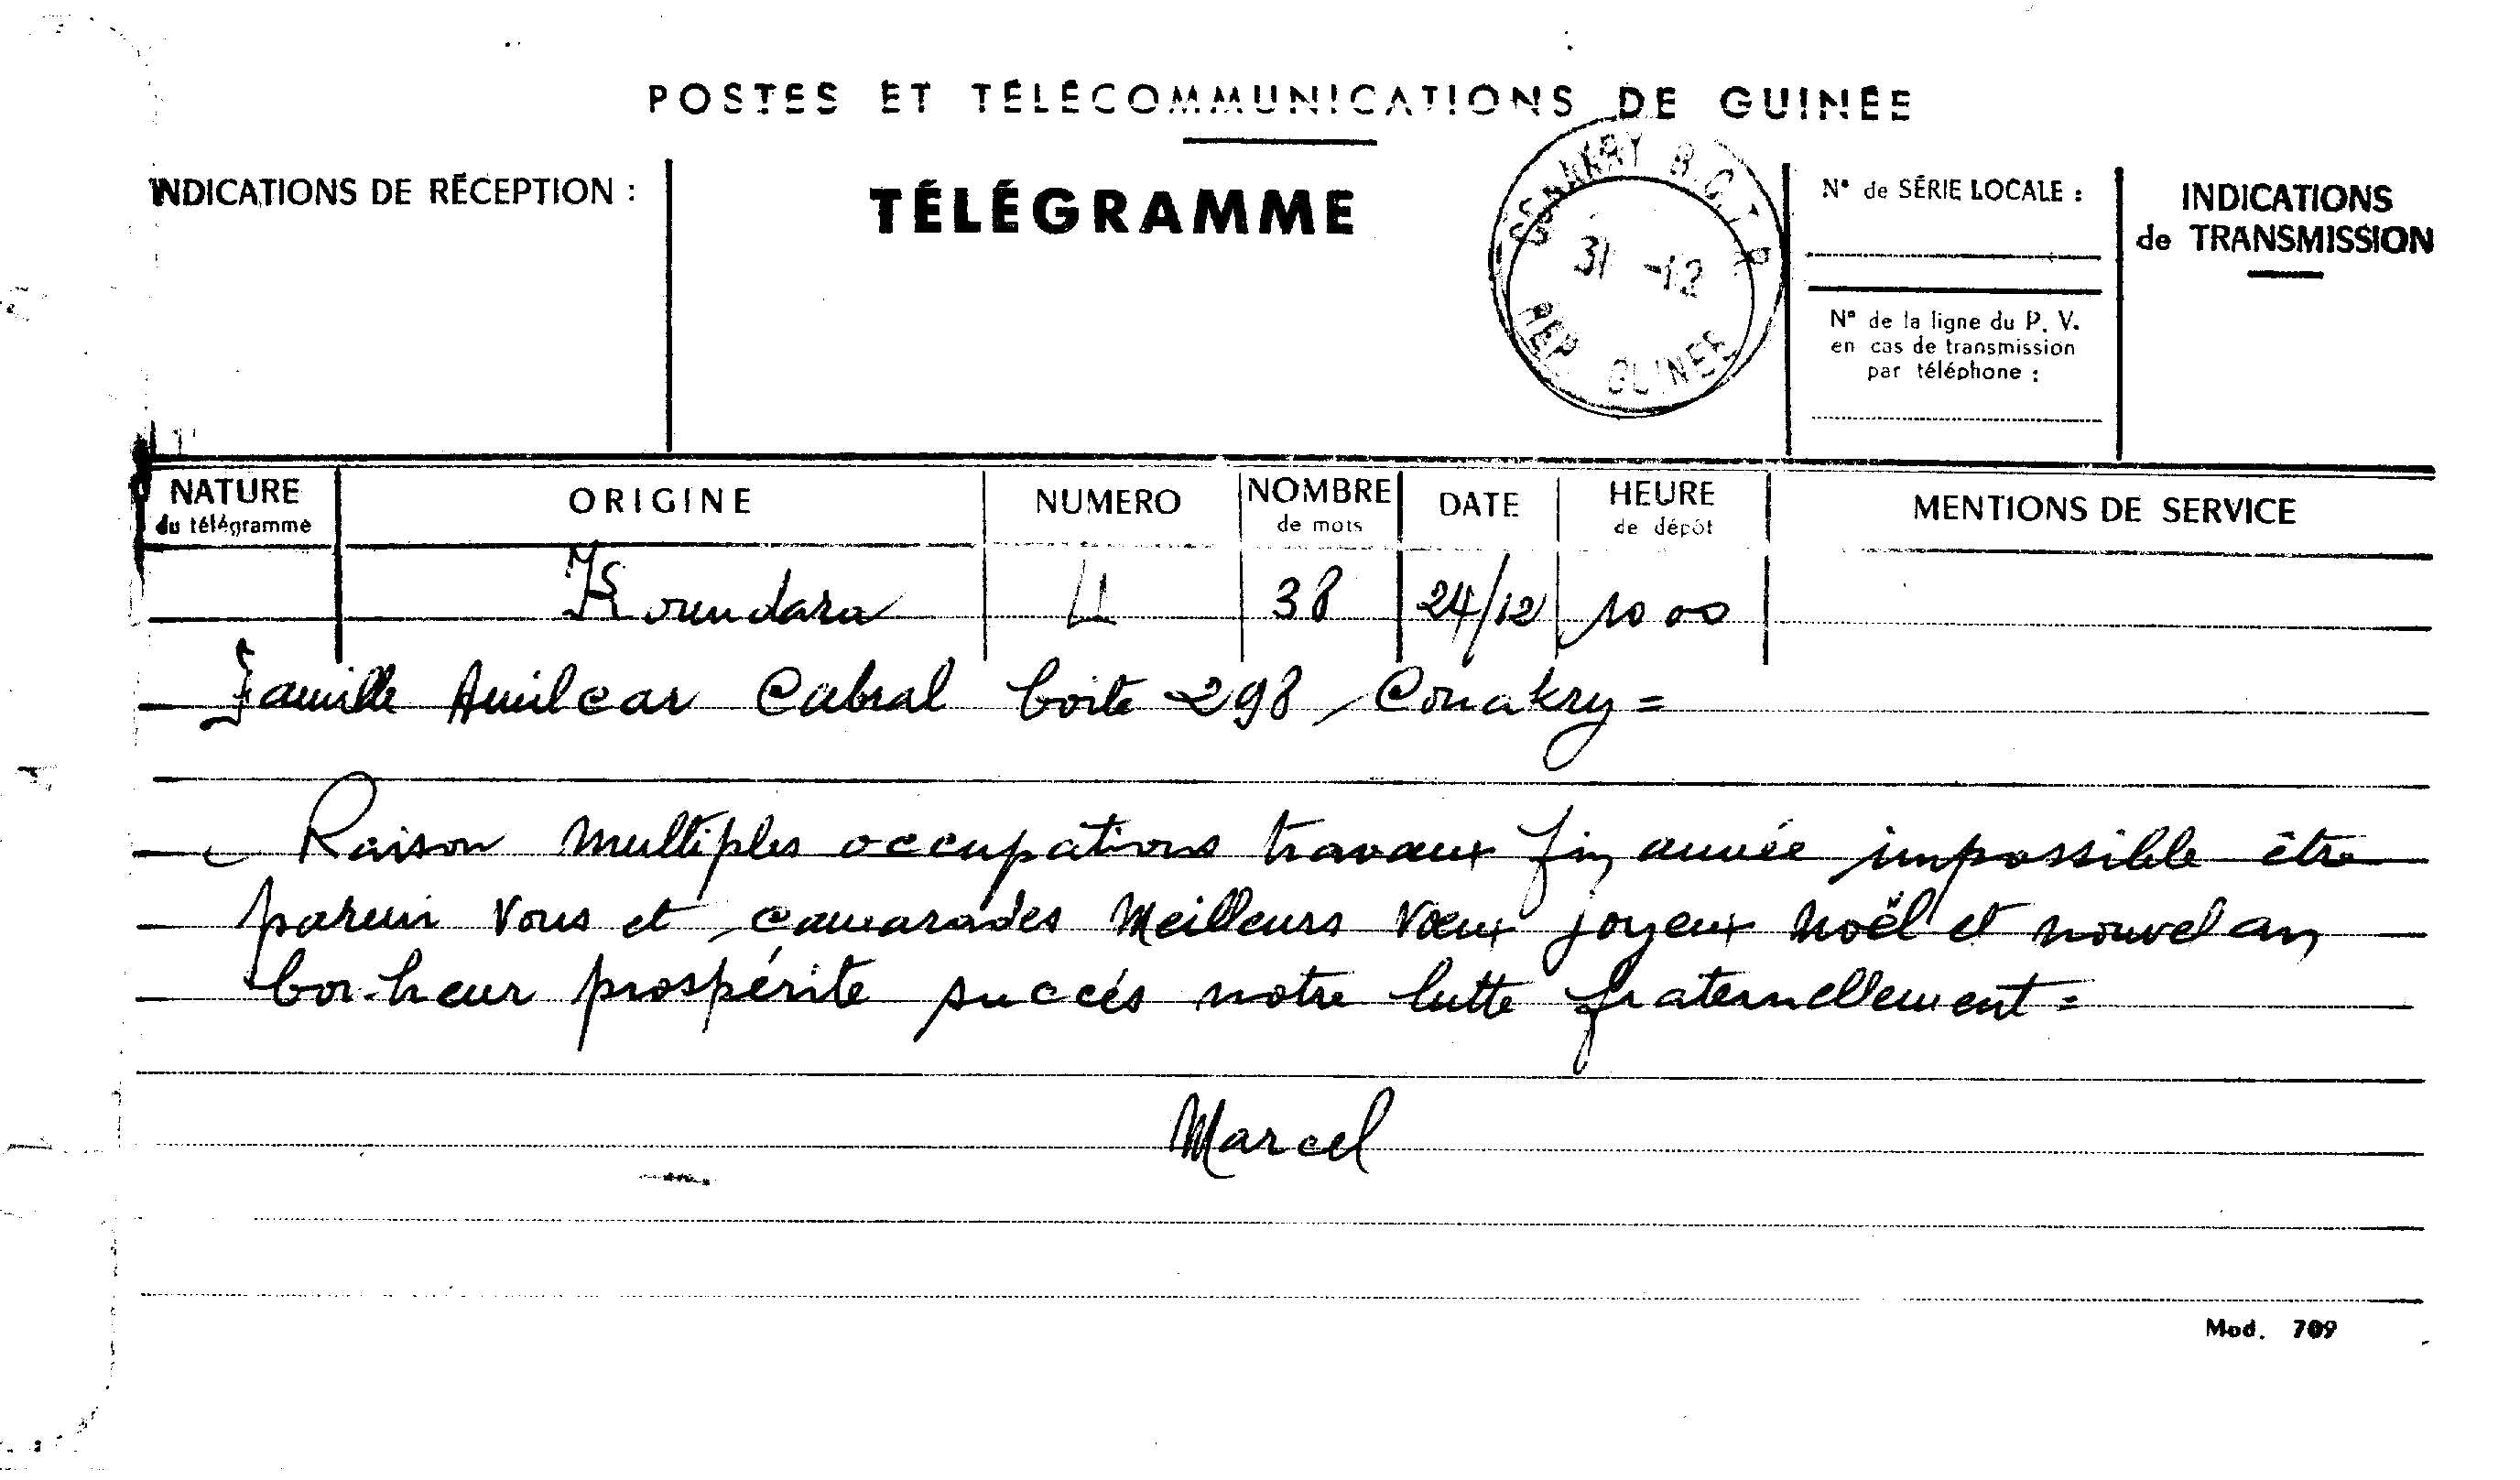 POSTES ET TÉLÉCOMMUNICATIONS DE GUINÉE
INDICATIONS DE RÉCEPTION :
TÉLÉGRAMME
CONAKRY B.C.T.R
31 -12
REP GUINEE
N° de SÉRIE LOCALE :
N° de la ligne du P. V.
en cas de transmission
par téléphone :
INDICATIONS
de TRANSMISSION
NATURE
du télégramme
ORIGINE
NUMERO
NOMBRE
de mots
DATE
HEURE
de dépôt
MENTIONS DE SERVICE
Koundara 38 24/12 10 00
Famille Amilcar Cabral boite 298 Conakry =
Raison multiples occupations travaux fin année impossible être
parmi vous et camarades Meilleurs vœux joyeux noël et nouvel an
bonheur prospérité succés notre lutte fraternellement =
Marcel
Mod. 709